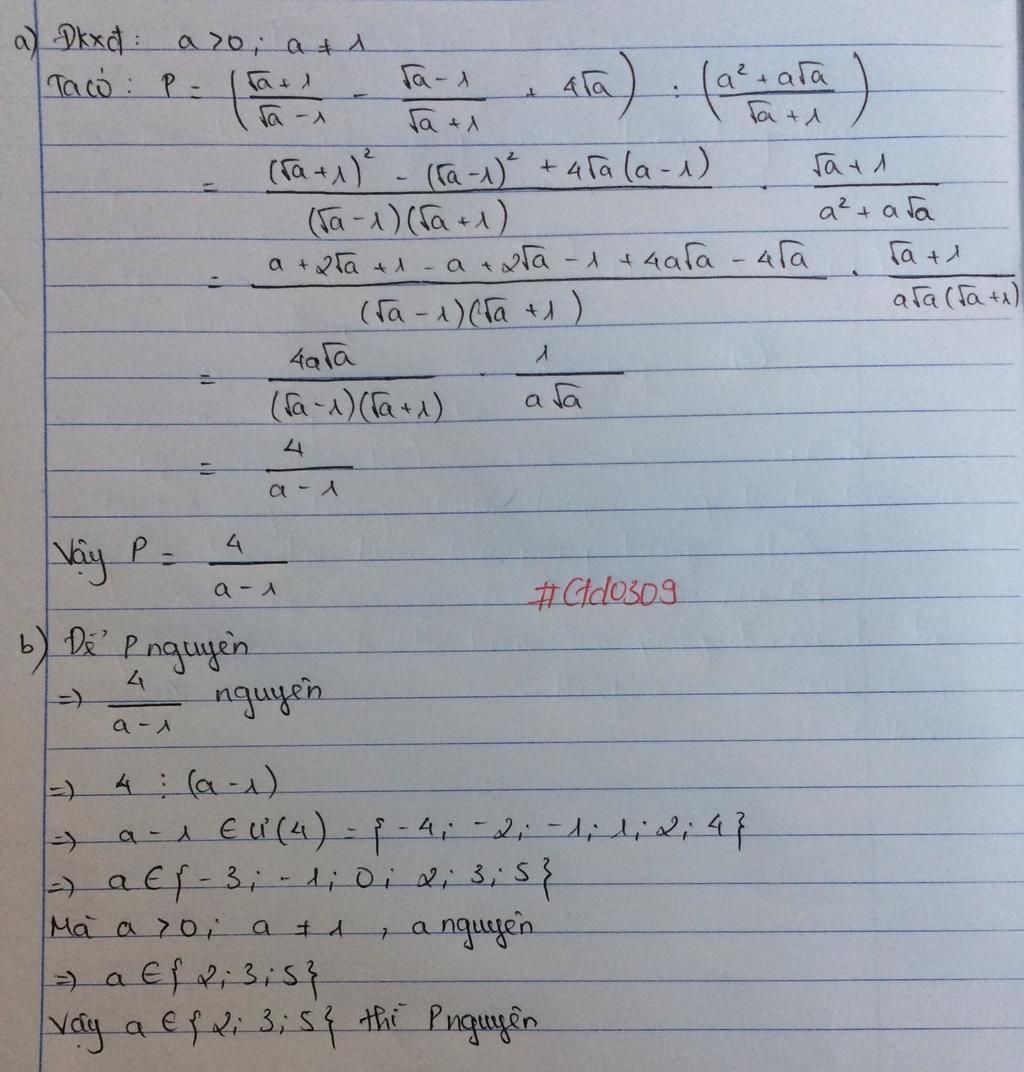 a) Đkxđ: a > 0; a ≠ 1
Ta có: P = ( (√a + 1)/(√a - 1) - (√a - 1)/(√a + 1) + 4√a ) : ( (a² + a√a)/(√a + 1) )
= ((√a + 1)² - (√a - 1)² + 4√a(a - 1))/((√a - 1)(√a + 1)) . (√a + 1)/(a² + a√a)
= (a + 2√a + 1 - a + 2√a - 1 + 4a√a - 4√a)/((√a - 1)(√a + 1)) . (√a + 1)/(a√a(√a + 1))
= 4a√a/((√a - 1)(√a + 1)) . 1/(a√a)
= 4/(a - 1)
Vậy P = 4/(a - 1)
#Ctd0309
b) Để P nguyên
=> 4/(a - 1) nguyên
=> 4 ⋮ (a - 1)
=> a - 1 ∈ Ư(4) = { -4; -2; -1; 1; 2; 4 }
=> a ∈ { -3; -1; 0; 2; 3; 5 }
Mà a > 0; a ≠ 1, a nguyên
=> a ∈ { 2; 3; 5 }
Vậy a ∈ { 2; 3; 5 } thì P nguyên